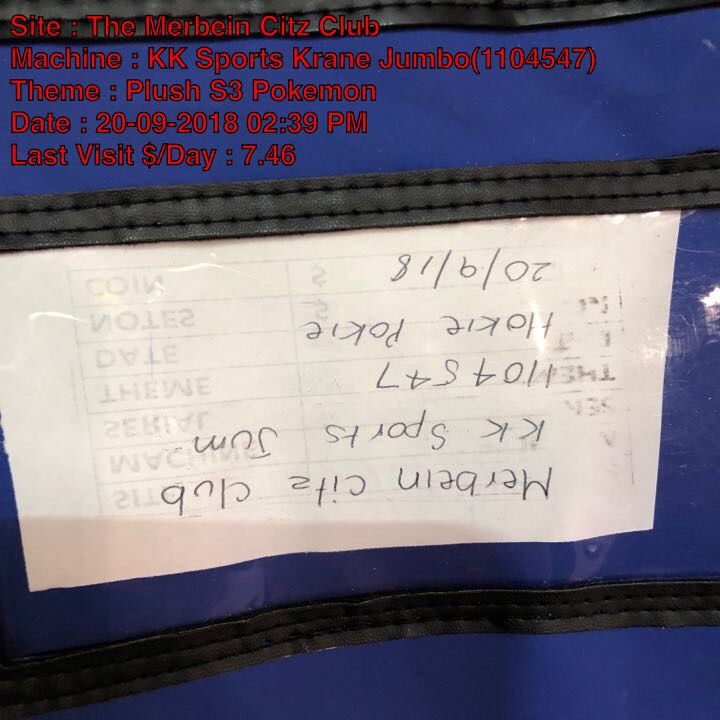 Site : The Merbein Citz Club
Machine : KK Sports Krane Jumbo(1104547)
Theme : Plush S3 Pokemon
Date : 20-09-2018 02:39 PM
Last Visit $/Day : 7.46
Merbein Citz Club
KK Sports Jum
1104547
Hokie Pokie
20/9/18
SIT
MACHIN
SERIAL
THEME
DATE
NOTES $
COIN $